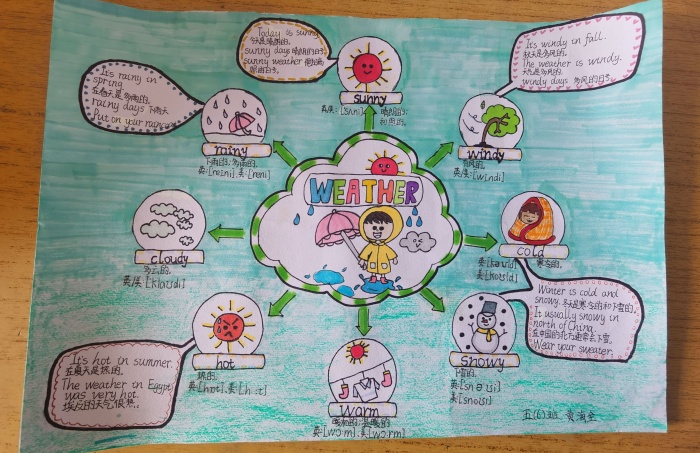 Today is sunny
今天是晴朗的.
sunny days 晴朗的日子
sunny weather
sunny
晴朗的;
和煦的.
It's windy in fall.
秋天是多风的.
The weather is windy.
天气是多风的.
windy days 多风的日子
windy
有风的.
英/美:[wɪndi]
It's rainy in
spring
在春天是多雨的.
rainy days 下雨天
Put on your raincoat
rainy
下雨的; 多雨的.
英:[reɪni], 美:[reni]
WEATHER
cloudy
多云的.
英/美:[klaʊdi]
cold
寒冷的.
英:[kəʊld]
美:[koʊld]
Winter is cold and
snowy. 冬天是寒冷的和下雪的.
It usually snowy in
north of China.
在中国的北方通常会下雪.
Wear your sweater
snowy
下雪的.
英:[snəʊi]
美:[snoʊi]
It's hot in summer.
在夏天是热的.
The weather in Egypt
was very hot.
埃及的天气很热.
hot
热的.
warm
暖和的; 温暖的
英:[wɔ:m], 美:[wɔ:rm]
五(6)班